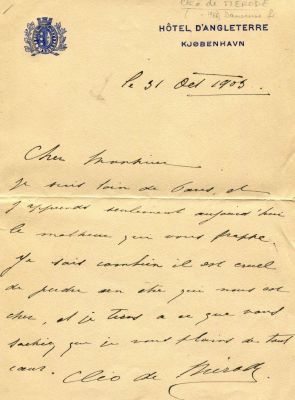 Cléo de MERODE
Danseuse
HÔTEL D'ANGLETERRE
KJØBENHAVN
le 31 Oct 1903.
Cher Monsieur
Je suis loin de Paris, et
j'apprends seulement aujourd'hui
le malheur qui vous frappe.
Je sais combien il est cruel
de perdre un être qui nous est
cher, et je tiens a ce que vous
sachiez que je vous plains de tout
cœur.
Cléo de Mérode